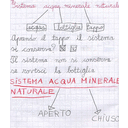 Sistema acqua minerale naturale
acqua bottiglia tappo
Aprendo il tappo il sistema
si conserva? SI NO
Il sistema non si conserva
se rovesci la bottiglia
SISTEMA ACQUA MINERALE
NATURALE
APERTO CHIUSO